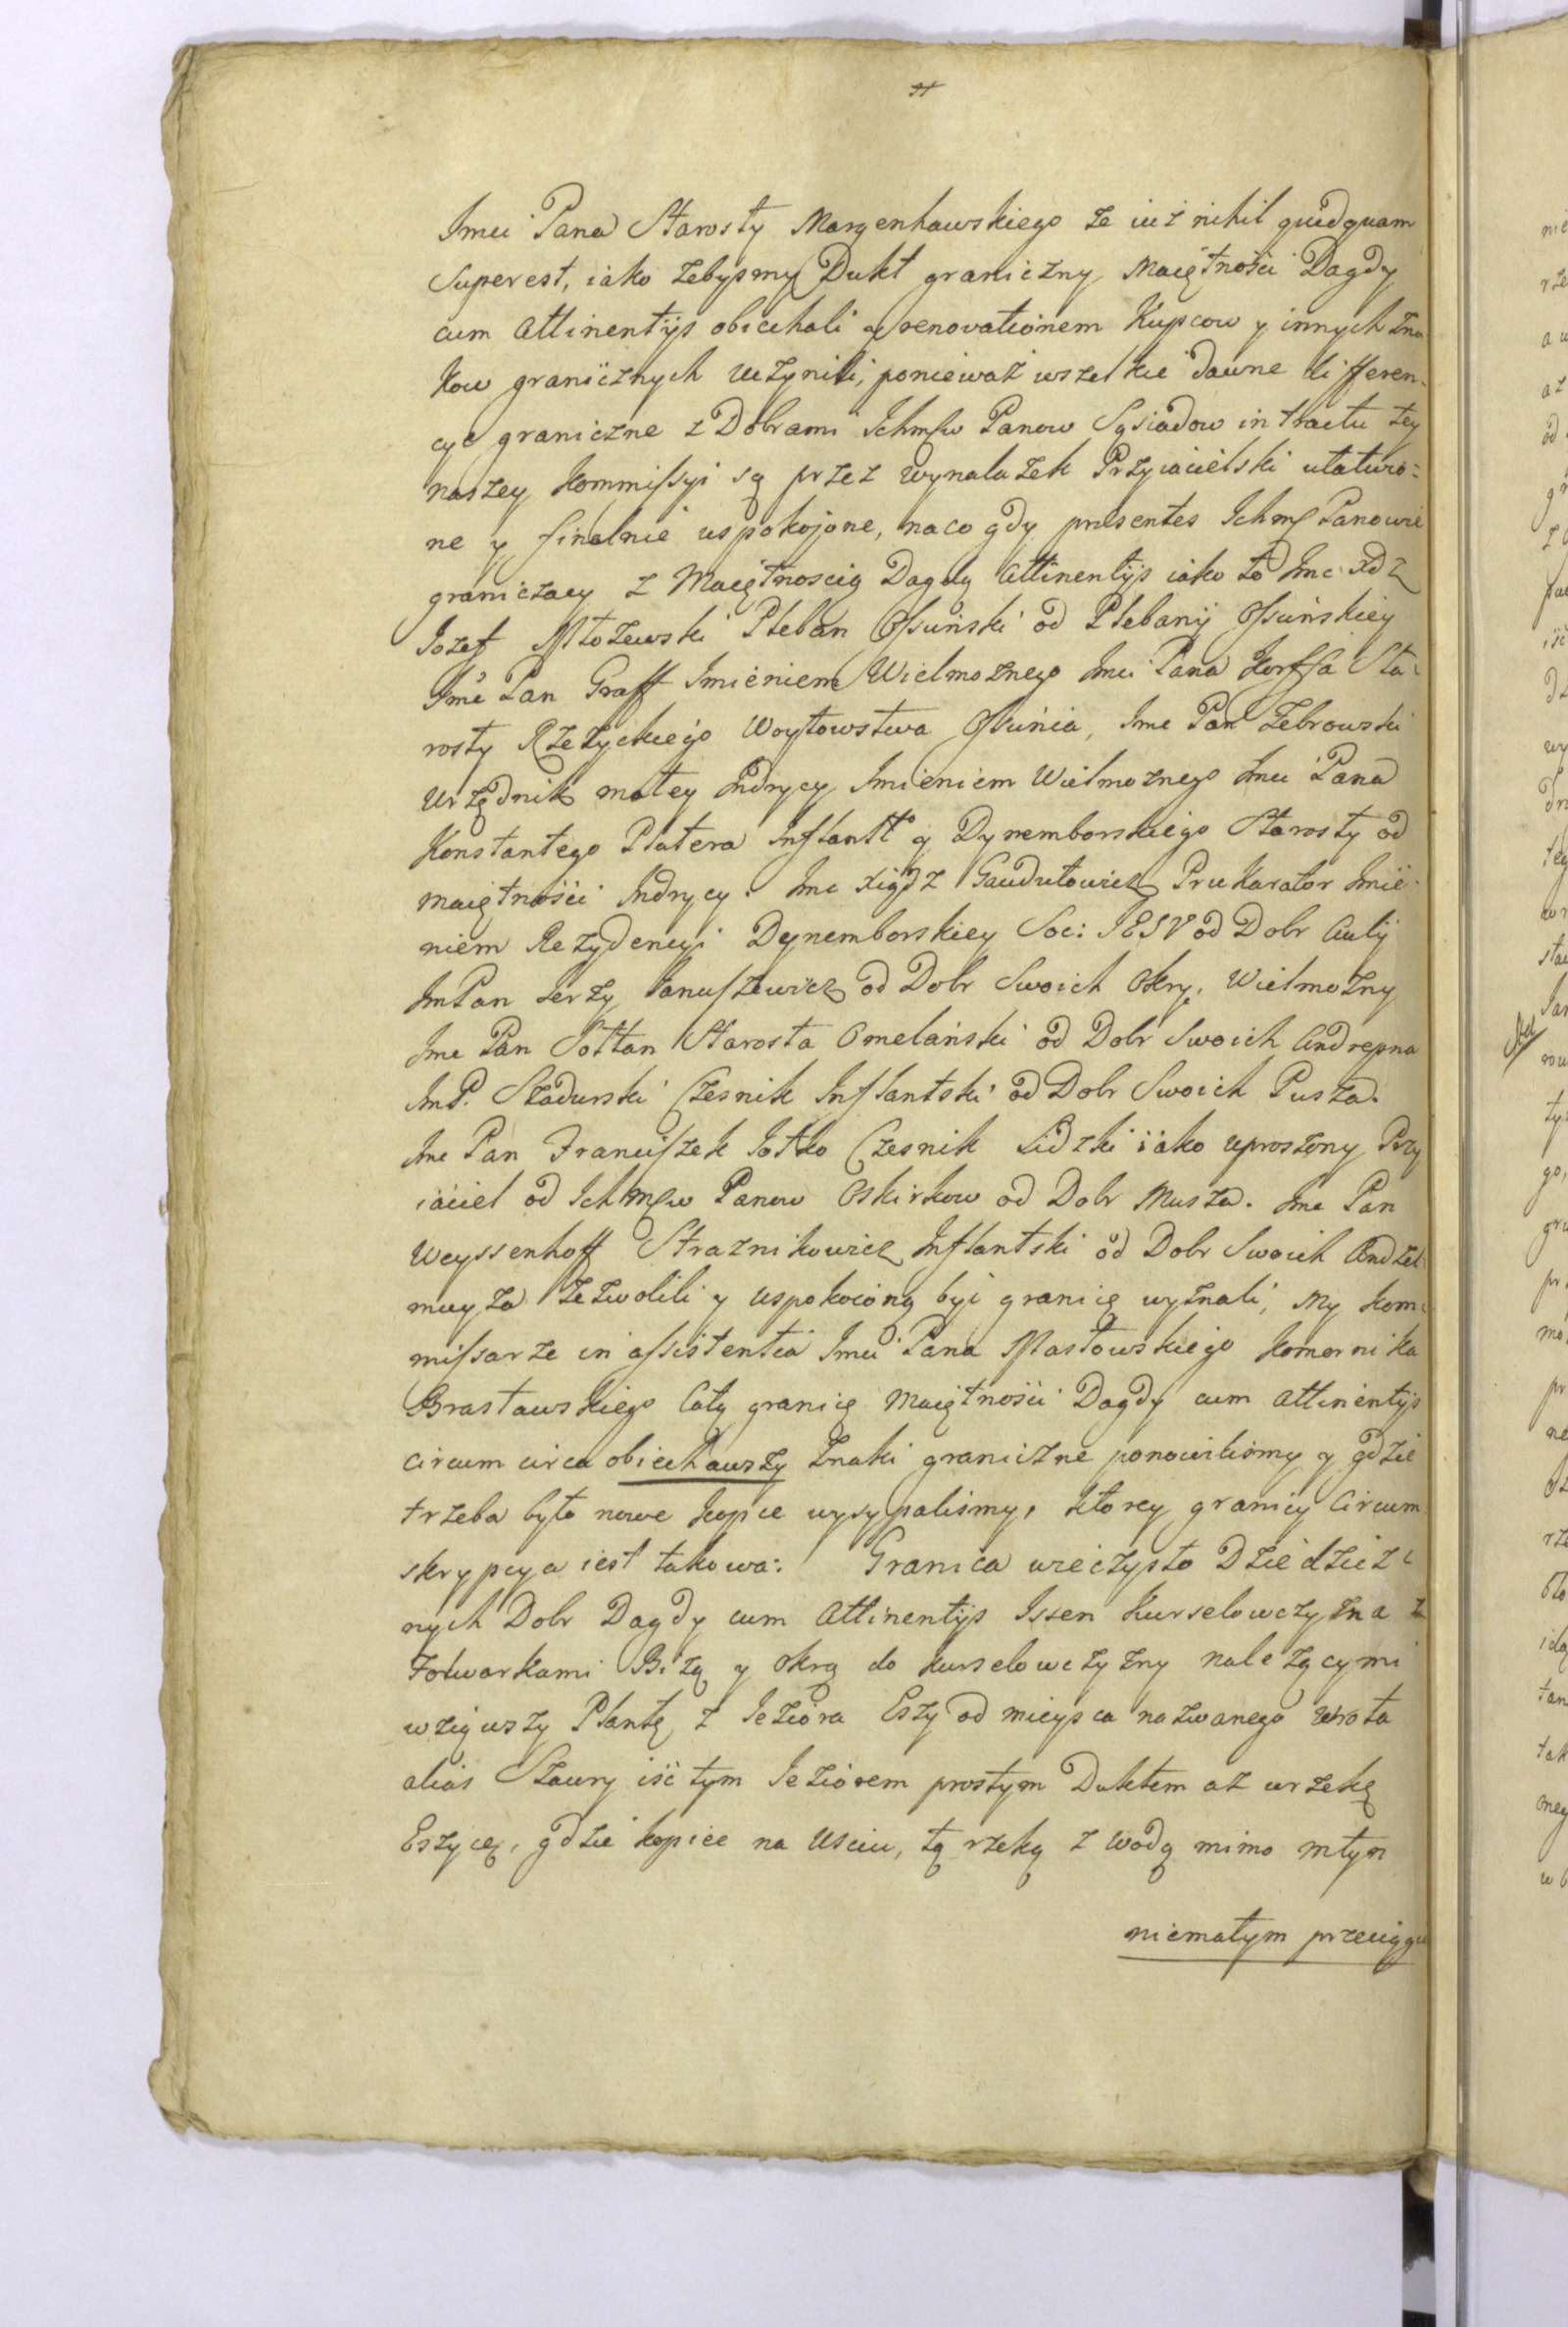 Jmci Pana Starosty Margenhawskiego że iuż nihil quidquam
Superest, iako żebysmy Dukt graniczny Maiętności Dagdy
cum Attinentijs obiechali y renovationem Kupcow y innych zna
kow granicznych uczynili, ponieważ wszelkie dawne differen-
cye graniczne z Dobrami Ichmſw Panow Sąsiadow in tractu tey
naszey Kommiſsyi są przez wynalazek Przyiacielski utatwio=
ne y finalnie uspokojone, na co gdy præsentes Ichmſ Panowie
graniczący z Maiętnoscią Dagdą Attinentijs iako to Jmc Xdz
Jozef Młożewski Pleban Oſsuński od Plebanij Oſsuńskiey
Jmć Pan Graff Jmieniem Wielmożnego Jmci Pana Korffa Sta-
rosty Rzeżyckiego Woytowstwa Oſsunia, Jmc Pan Żebrowski
Urzędnik małey Jndrycy Jmieniem Wielmożnego Jmci Pana
Konstantego Platera Jnflantto y Dynemborskiego Starosty od
maiętności Jndrycy. Jmc Xiądz Gaudutowicz Prukarator Jmie-
niem Rezydencyi Dynemborskiey Soc: JESV od Dobr Aulij
JmPan Jerzy Januſzewicz od Dobr Swoich Okry, Wielmożny
Jmc Pan Sołtan Starosta Omelański od Dobr Swoich Andrepna
JmP. Szadurski Czesnik Jnflantski od Dobr Swoich Pusza.
Jmc Pan Franciſzek Jotko Czesnik Lidzki iako uproszony Przy
iaciel od Ichmſw Panow Oskirkow od Dobr Musza. Jmc Pan
Weyssenhoff Strażnikowicz Jnflantski od Dobr Swoich Andzel-
muyza zezwolili y uspokoioną być granicę wyznali, My Kom-
miſsarze in aſsistentia Jmci Pana Masłowskiego Komornika
Brasławskiego Całą granicę Maiętności Dagdy cum Attinentijs
circum circa obiechawszy Znaki graniczne ponowilismy y gdzie
trzeba było nowe kopce wysypaliśmy, ktorey granicy Circum
skrypcya iest takowa: Granica wieczysto Dziedzicz-
nych Dobr Dagdy cum Attinentijs Issen Kurselowczyzna z
Folwarkami Bizą y Okrą do Kurselowczyzny należącymi
wziąwszy Plantę z Jeziora Eszy od mieysca nazwanego Wrota
alias Stawry iść tym Jeziorem prostym Duktem aż w rzekę
Eszycę, gdzie kopiec na Usciu, tą rzeką z wodą mimo młyn
niemałym przeciągu